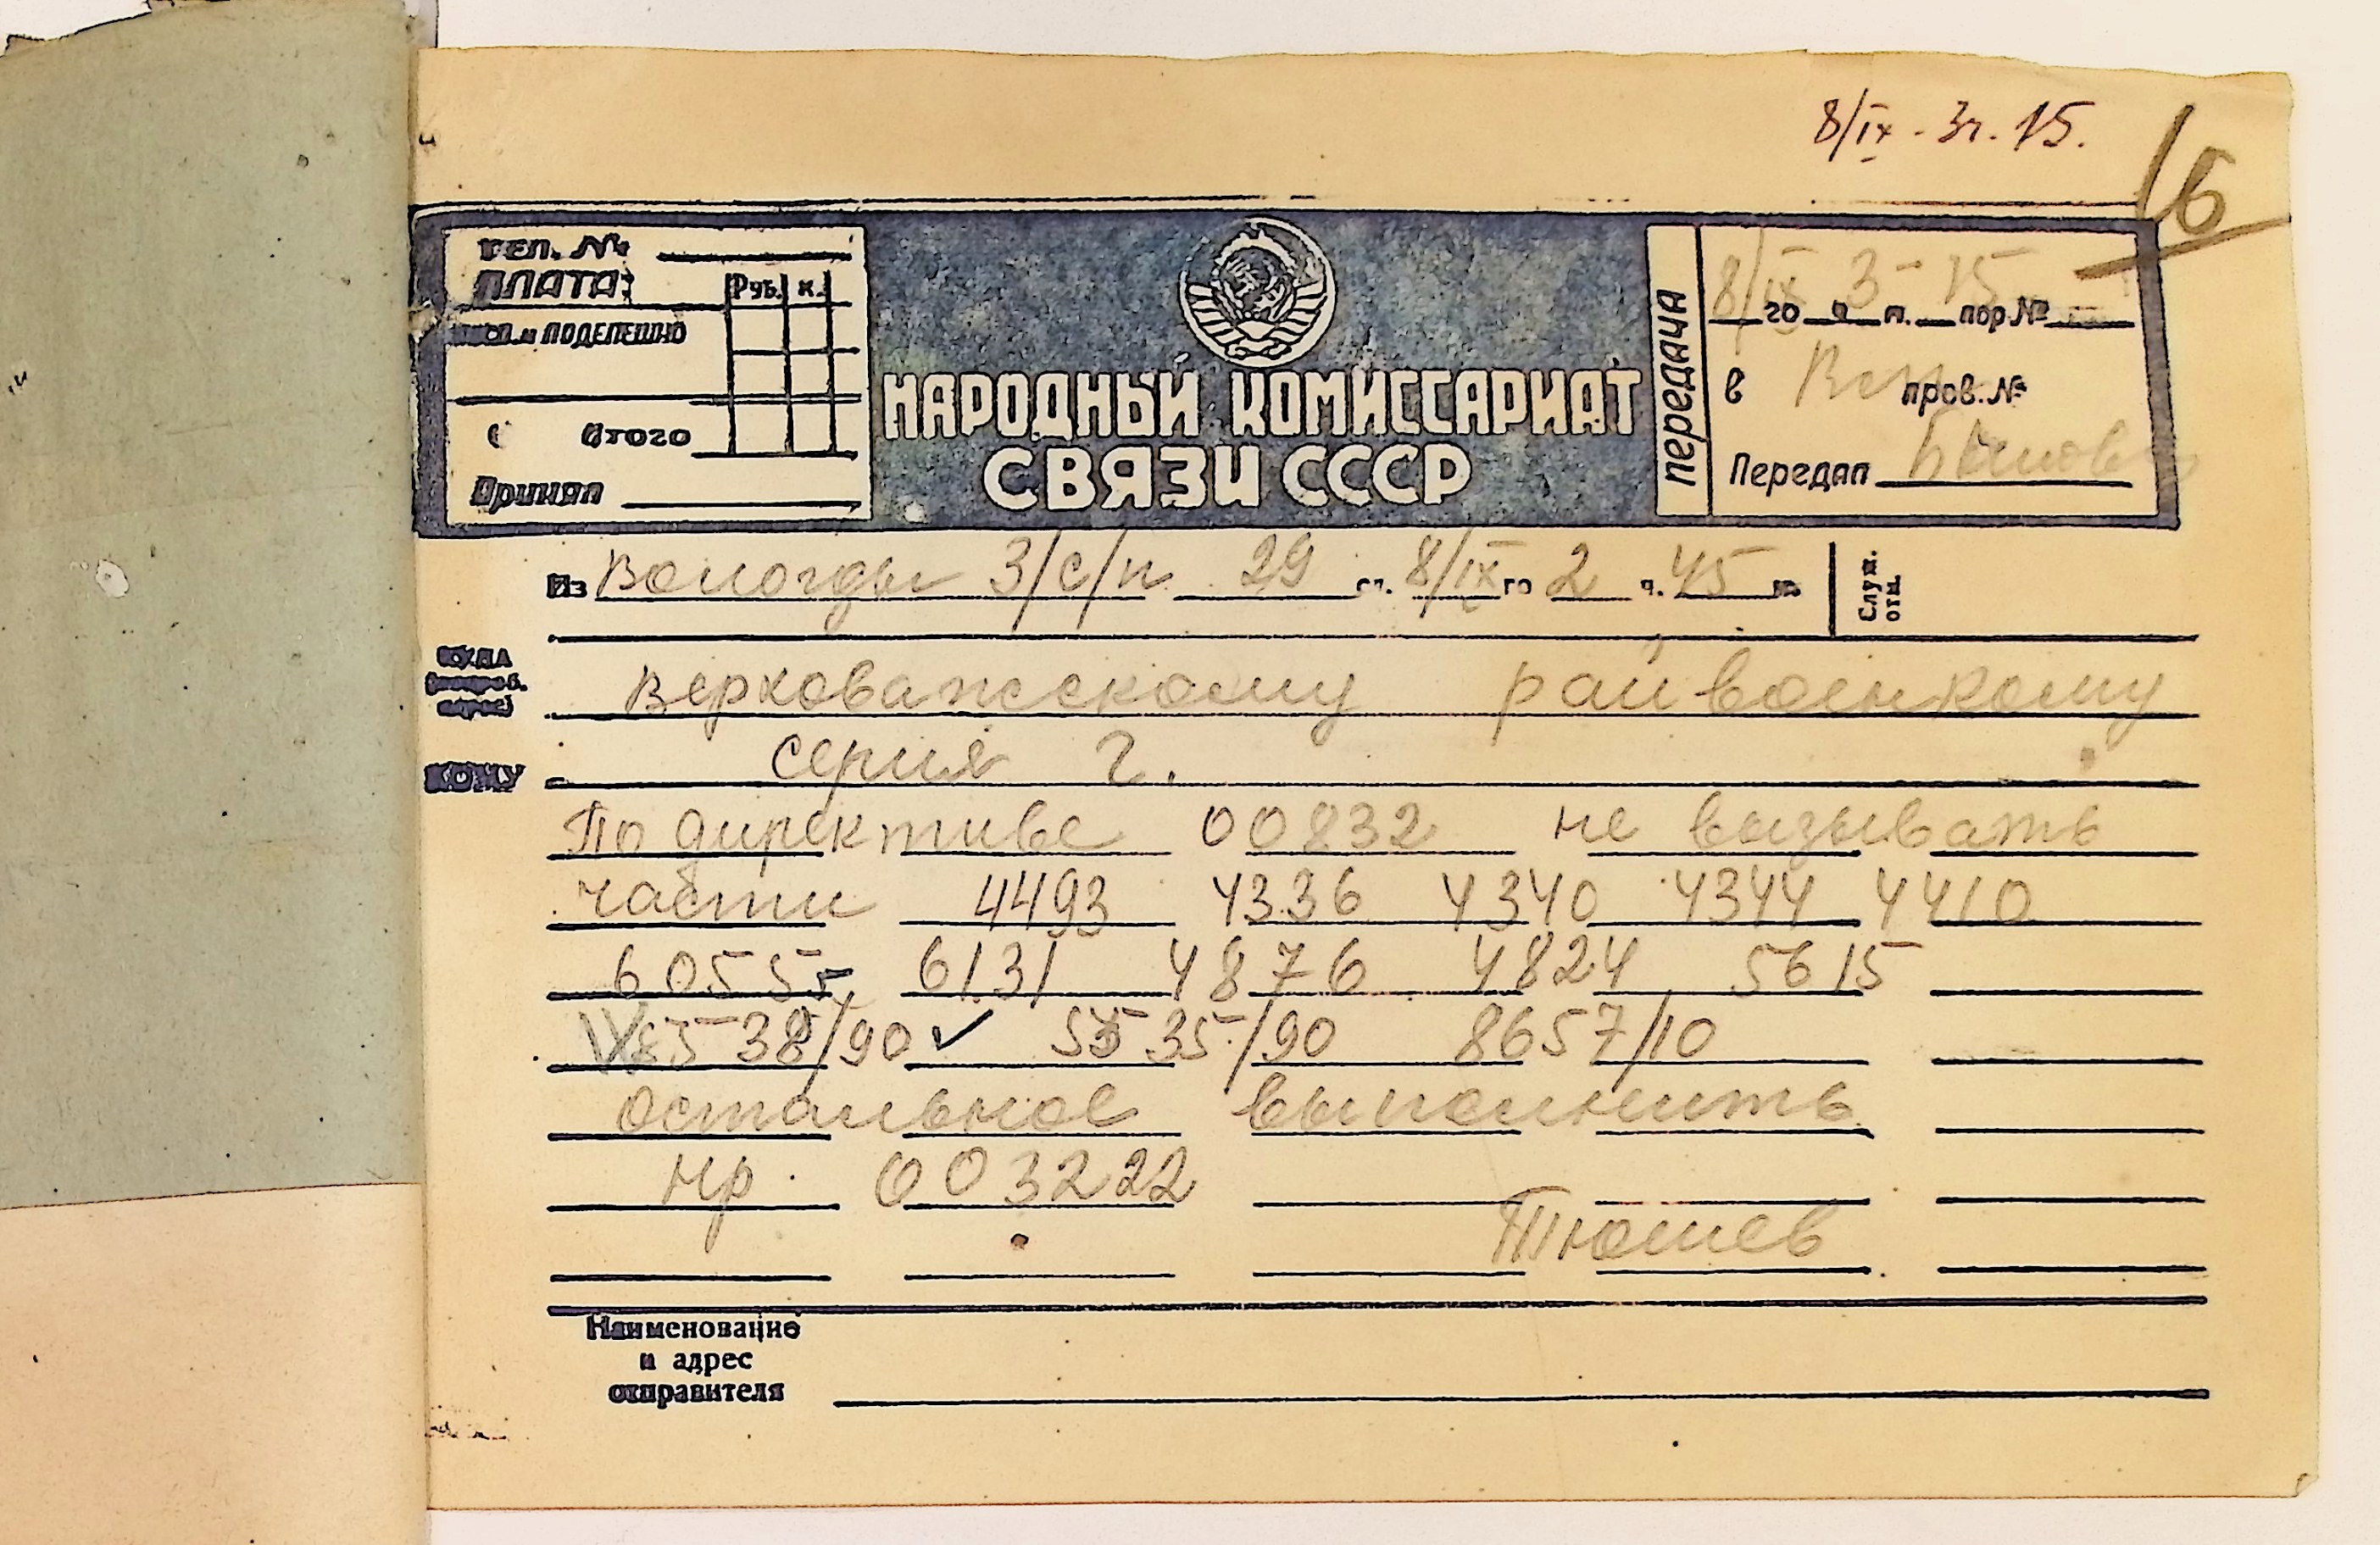 8/IX - 3ч. 15.
6
тел. №
ПЛАТА:
Руб. к.
и ПОДЕПЕШНО
Итого
Принял
НАРОДНЫЙ КОМИССАРИАТ
СВЯЗИ СССР
ПЕРЕДАЧА
8/IX го 3 ч. 15 м. пор №
в пров. №
Передал
Из Вологды 3/с/п 29 сл. 8/IX го 2 ч. 45 м.
Служ. отм.
КУДА
Верховажскому райвоенкому
КОМУ
серия г.
По директиве 00832 не вызывать
части 4493 4336 4340 4344 4410
6055 6131 4876 4824 5615
38/90 ✓ 5535/90 8657/10
остальное выполнить
нр. 003222
Тюшев
Наименование
и адрес
отправителя